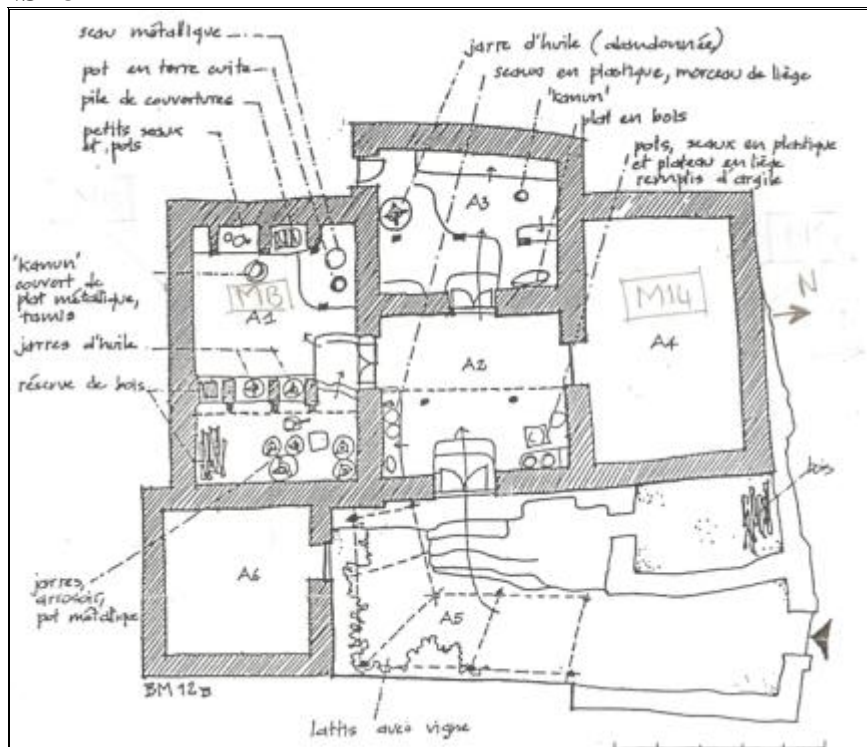 seau métallique
pot en terre cuite
pile de couvertures
petits seaux
et pots
'kanun'
couvert de
plat métallique,
tamis
jarres d'huile
réserve de bois
jarres,
arrosoir,
pot métallique
jarre d'huile (abandonnée)
seaux en plastique, morceau de liège
'kanun'
plat en bois
pots, seaux en plastique
et plateau en liège
remplis d'argile
A3
MB
A1
M14
A4
N
A2
bois
A6
A5
BM 12B
lattis avec vigne